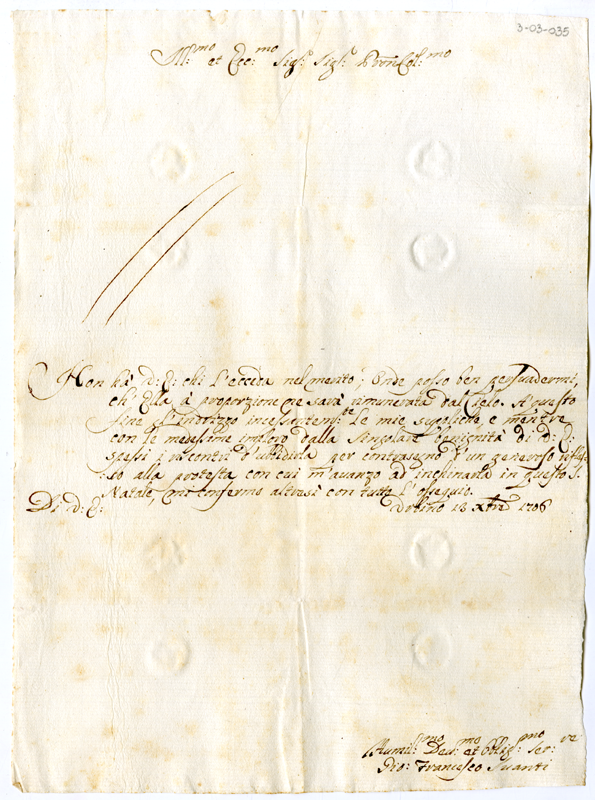 3-03-035
Ill:mo et Ecc:mo Sig:r Sig:r Pron Col:mo
Non hà V: E: chi l'ecceda nel merito; Onde posso ben persuadermi,
ch'Ella à proporzione ne sarà rimunerata dal Cielo. A questo
fine l'indrizzo incessantem:te le mie suppliche, e mentre
con le medesime imploro dalla singolare benignità di V: E:
spessi i riscontri d'ubbidirla per contrasegno d'un generoso
so alla protesta con cui m'avanzo ad inchinarla in questo S.
Natale, mi confermo altresì con tutto l'ossequio.
Di V: E: Urbino 18 Xbre 1706
Humil:mo Dev:mo et Oblig:mo Ser:re
Gio: Francesco